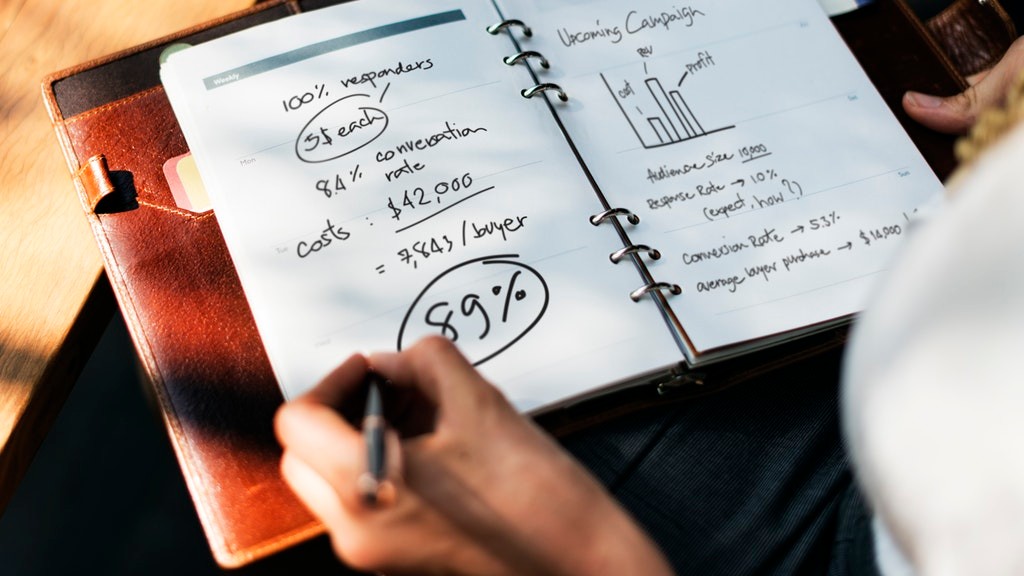 Weekly
100% responders
5$ each
8.4% conversation
rate
costs : $42,000
= 7,843 /buyer
89%
Mon
Upcoming Campaign
cost
rev
profit
Audience Size 10,000
Response Rate → 10%
(expect, how?)
Conversion Rate → 5.3%
average buyer purchase → $14,000